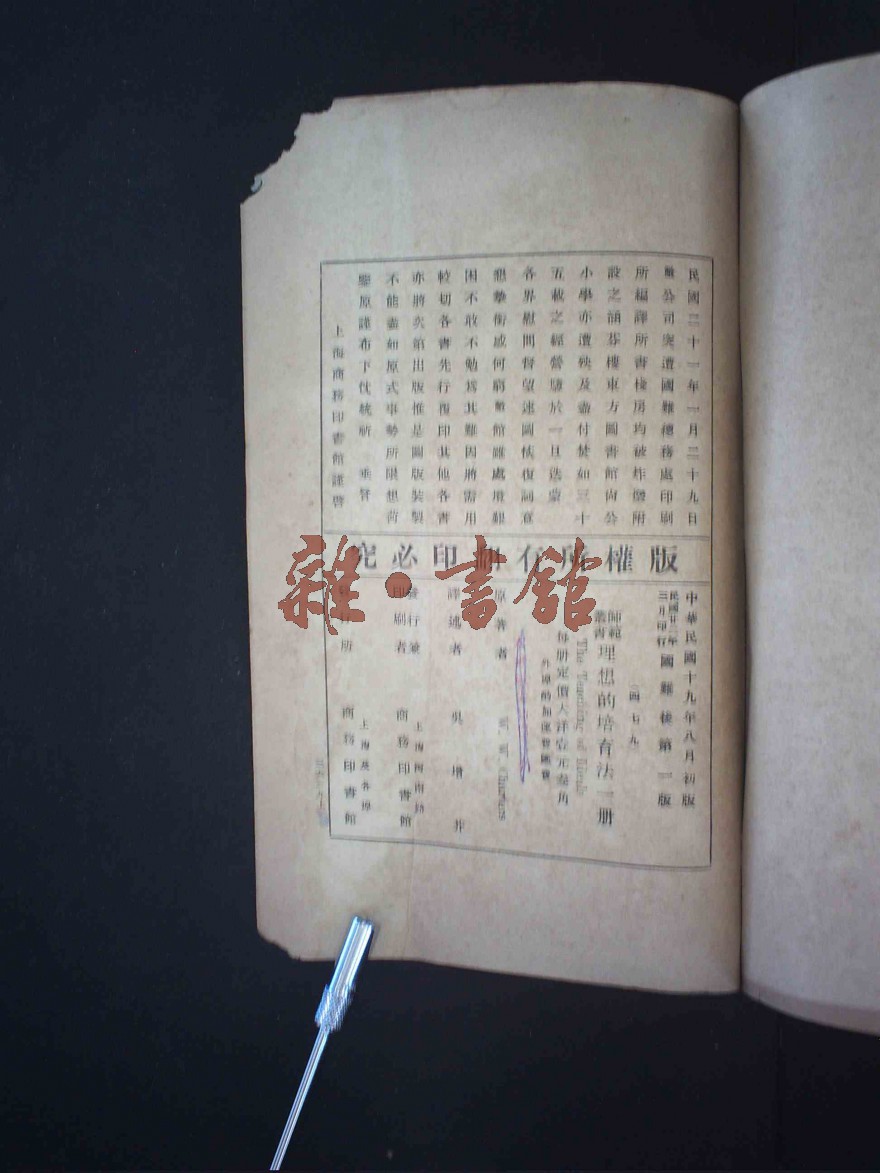 民國二十一年一月二十九日
敝公司突遭國難總務處印刷
所編譯所書棧房均被炸燬附
設之涵芬樓東方圖書館尚公
小學亦遭殃及盡付焚如三十
五載之經營隳於一旦迭蒙
各界慰問督望速圖恢復詞意
懇摯銜感何窮敝館雖處境艱
困不敢不勉爲其難因將需用
較切各書先行覆印其他各書
亦將次第出版惟是圖版裝製
不能盡如原式事勢所限想荷
鑒原謹布下忱統祈 垂詧
上海商務印書館謹啓
版權所有翻印必究
中華民國十九年八月初版
民國廿二年三月印行國難後第一版
(四七九)
師範叢書理想的培育法一册
The Teaching of Ideals
每册定價大洋壹元叁角
外埠酌加運費匯費
原著者 W. W. Charters
譯述者 吳增芥
發行兼印刷者 上海河南路 商務印書館
發行所 上海及各埠 商務印書館
雜·書館